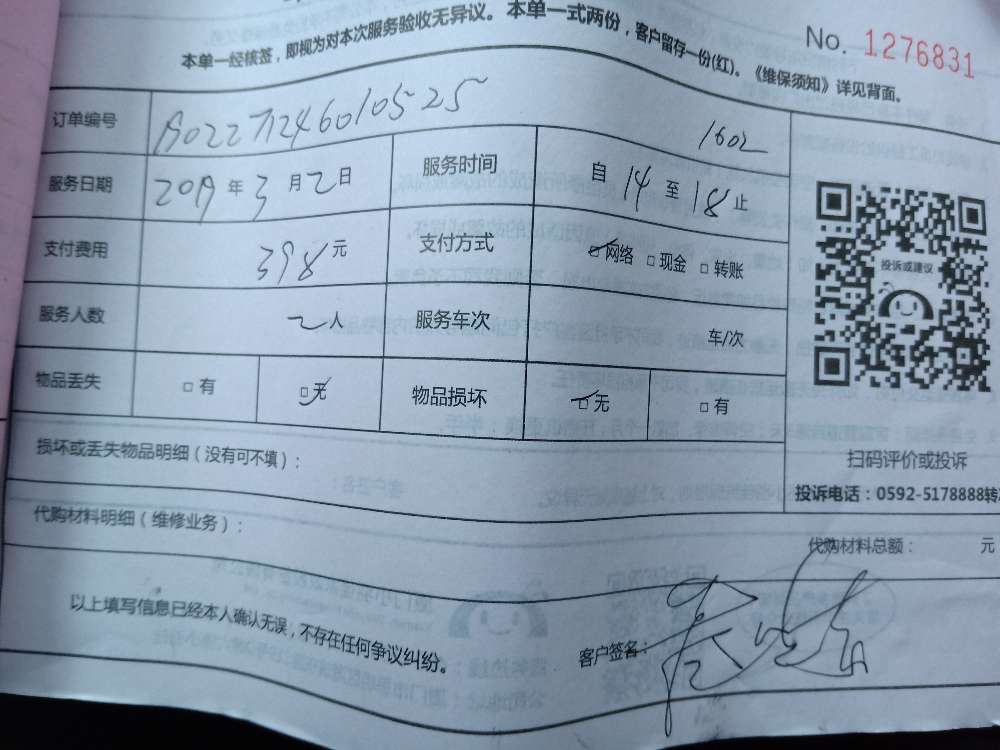 本单一经核签，即视为对本次服务验收无异议。本单一式两份，客户留存一份(红)。《维保须知》详见背面。
No. 1276831
订单编号 A02271246010525
1602
服务日期 2019年3月2日 服务时间 自14至18止
支付费用 398元 支付方式 网络 现金 转账
服务人数 2人 服务车次 车/次
物品丢失 有 无 物品损坏 无 有
投诉或建议
扫码评价或投诉
投诉电话：0592-5178888转
损坏或丢失物品明细（没有可不填）：
代购材料明细（维修业务）：
代购材料总额： 元
以上填写信息已经本人确认无误，不存在任何争议纠纷。
客户签名：